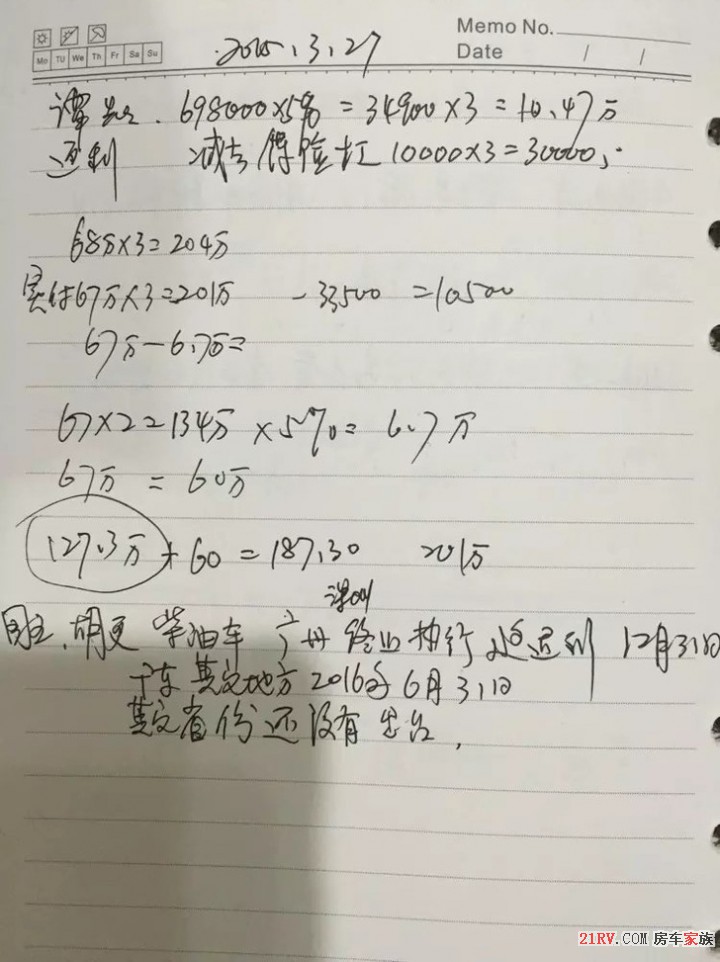 Memo No.
Mo Tu We Th Fr Sa Su
Date / /
2015.3.27
谭总. 698000×5% = 34900×3 = 10.47万
返利 减去保险杠 10000×3=30000,.
68万×3=204万
实付67万×3=201万 -33500 =10500
67万-6.7万=
67×2=134万 ×5%= 6.7万
67万 = 60万
127.3万+60=187.30 201万
深圳
柴油车 广州 终止执行 返利 12月31日
广东其它地方2016年6月31日
其它省份还没有出台,
21RV.COM 房车家族